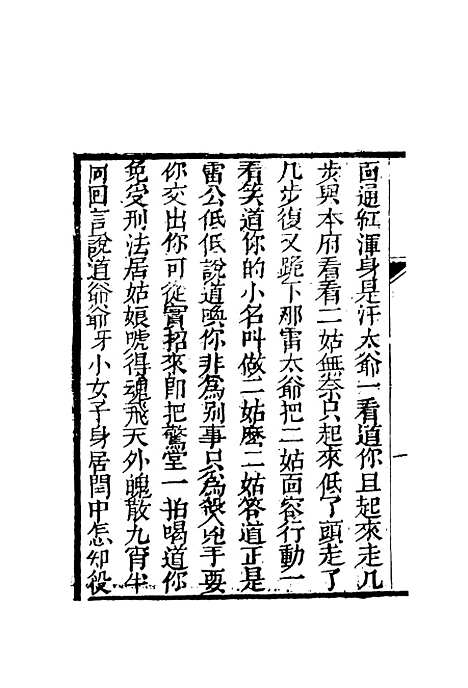 面通紅渾身是汗太爺一看道你且起來走几
步與本府看看二姑無奈只起來低了頭走了
几步復又跪下那雷太爺把二姑面容行動一
看笑道你的小名叫做二姑麽二姑答道正是
雷公低低說道喚你非為別事只為殺人兇手要
你交出你可從實招來即把驚堂一拍喝道你
免受刑法居姑娘唬得魂飛天外魄散九宵半
向回言說道爺爺呀小女子身居閨中怎知殺